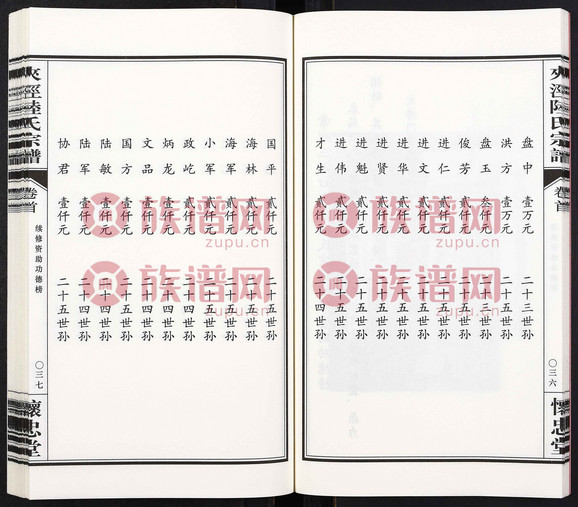 夾涇陸氏宗譜
卷首
〇三六
懷忠堂
盘中 壹万元 二十三世孙
洪方 壹万元 二十五世孙
盘玉 叁仟元 二十三世孙
俊芳 贰仟元 二十五世孙
进仁 贰仟元 二十四世孙
进文 贰仟元 二十五世孙
进华 贰仟元 二十五世孙
进贤 贰仟元 二十五世孙
进魁 贰仟元 二十五世孙
进伟 贰仟元 二十五世孙
才生 贰仟元 二十四世孙
国平 贰仟元 二十五世孙
海林 贰仟元 二十五世孙
海军 贰仟元 二十五世孙
小军 贰仟元 二十五世孙
政屹 贰仟元 二十四世孙
炳龙 贰仟元 二十四世孙
文品 壹仟元 二十四世孙
国方 壹仟元 二十五世孙
陆敏 壹仟元 二十四世孙
陆军 壹仟元 二十四世孙
协君 壹仟元 二十五世孙
夾涇陸氏宗譜
卷首
续修资助功德榜
〇三七
懷忠堂
族谱网
zupu.cn
族谱网
zupu.cn
族谱网
zupu.cn
族谱网
zupu.cn